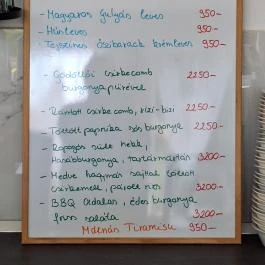 - Magyaros Gulyás leves 950-
- Húsleves 950-
- Tejszínes Őszibarack krémleves 950-
- Gödöllői csirkecomb
burgonyapürével 2250-
- Rántott csirkecomb, rizi-bizi 2250-
- Töltött paprika sós burgonya 2250-
- Ropogós sült hekk,
Hasábburgonya, tartármártás 3200-
- Medve hagymás sajttal töltött
csirkemell, párolt rizs 3200-
- BBQ oldalas, édes burgonya
friss saláta 3200-
Málnás Tiramisu 950-